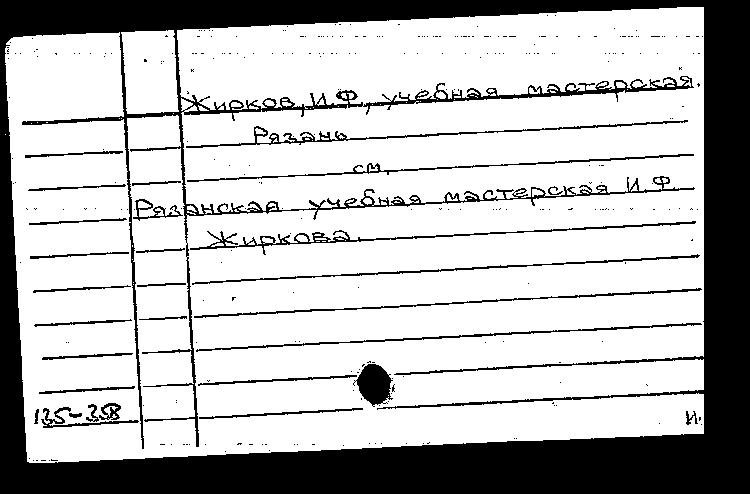 Жирков, И.Ф., учебная мастерская.
Рязань
см.
Рязанская учебная мастерская И.Ф.
Жиркова.
И.